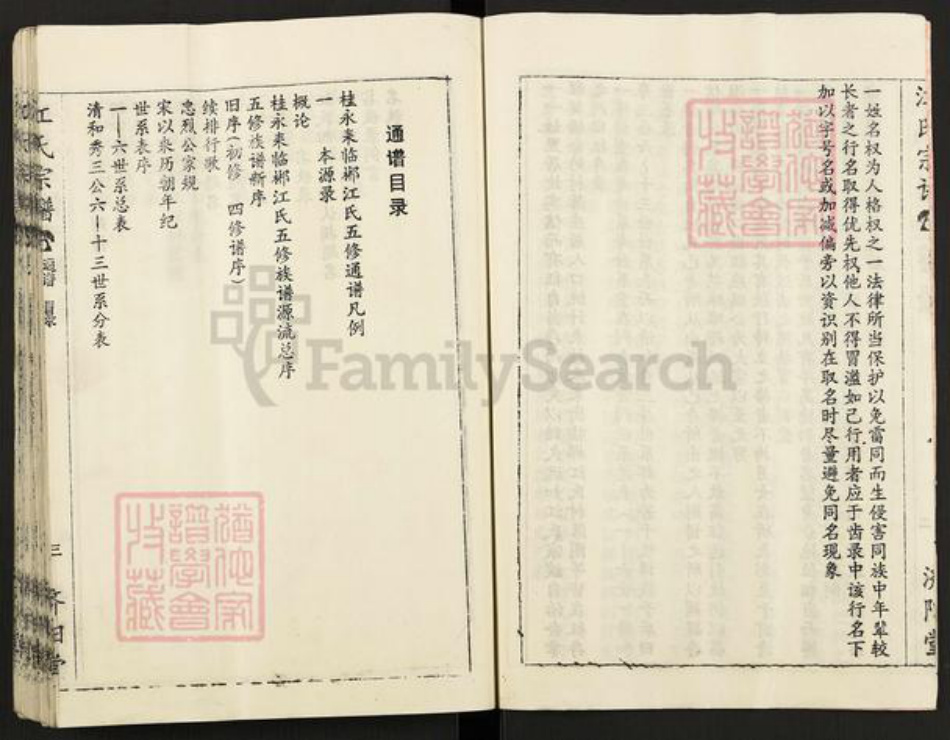 一姓名权为人格权之一法律所当保护以免雷同而生侵害同族中年辈较
长者之行名取得优先权他人不得冒滥如己行用者应于齿录中该行名下
加以字号名或加减偏旁以资识别在取名时尽量避免同名现象
通谱目录
桂永耒临郴江氏五修通谱凡例
一 本源录
概论
桂永耒临郴江氏五修族谱源流总序
五修族谱新序
旧序(初修 四修谱序)
续排行歌
忠烈公家规
宋以来历朝年纪
世系表序
一—六世系总表
清和秀三公六—十三世系分表
江氏宗谱
通谱 目录
三
江氏宗谱
济阳堂
猶他家譜學會收藏
猶他家譜學會收藏
FamilySearch